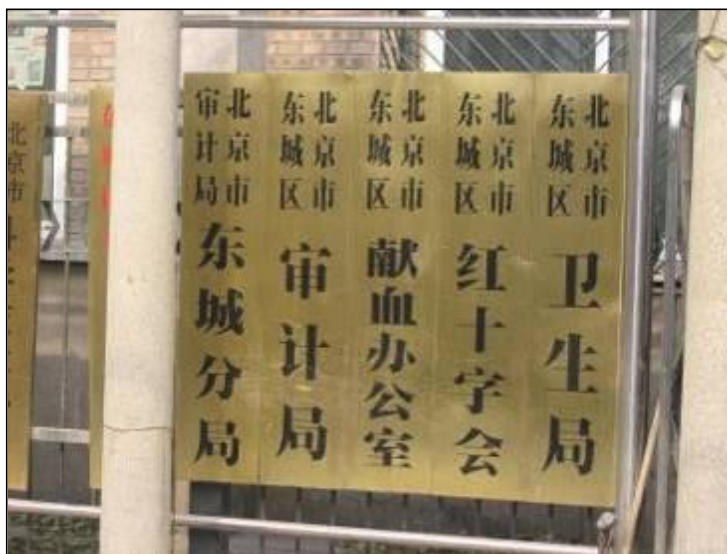 北京市
东城区
卫生局
北京市
东城区
红十字会
北京市
东城区
献血办公室
北京市
东城区
审计局
北京市
审计局
东城分局
北京市